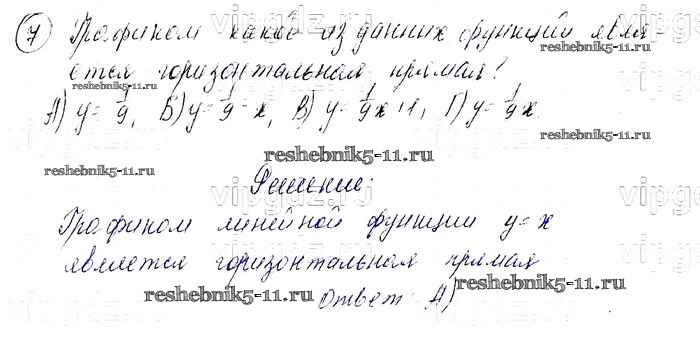 7 Графиком какой из данных функций явля-
ется горизонтальная прямая?
А) y = 1/9, Б) y = 1/9 - x, В) y = 1/9 x + 1, Г) y = 1/9 x
reshebnik5-11.ru
reshebnik5-11.ru
Решение:
Графиком линейной функции y = x
является горизонтальная прямая
reshebnik5-11.ru
reshebnik5-11.ru
Ответ: А)
vipgdz.ru
vipgdz.ru
vipgdz.ru
vipgdz.ru